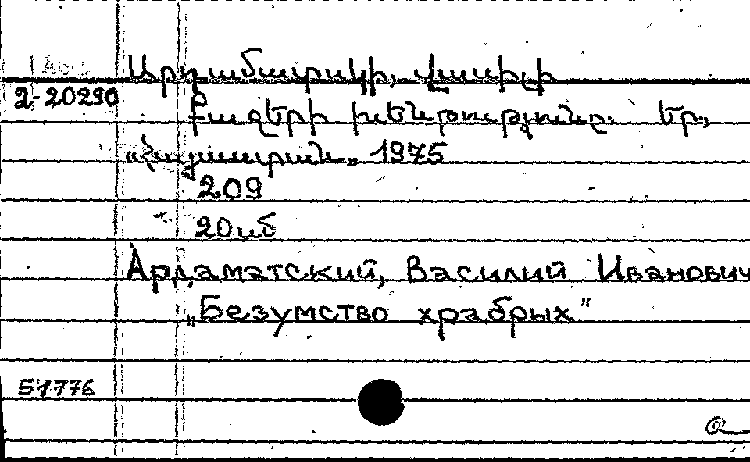 Արդամատսկի, Վասիլի
2-20290
Քաջերի խենթությունը. Եր.,
«Հայաստան», 1975
209
20սմ
Ардаматский, Василий Иванович
„Безумство храбрых"
51776